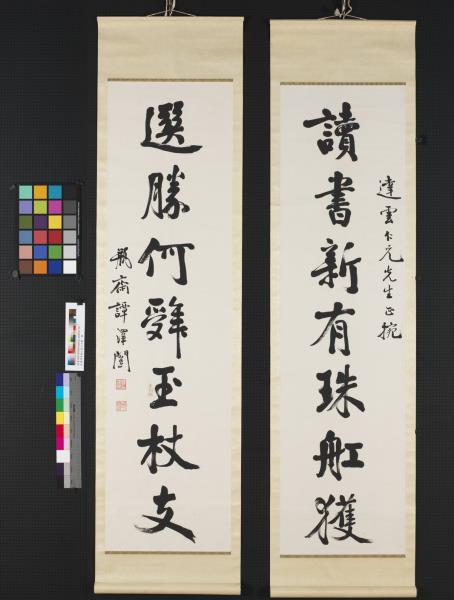 達雲仁兄先生正
讀書新有珠舡獲
選勝何辤玉杖支
瓶齋譚澤闓